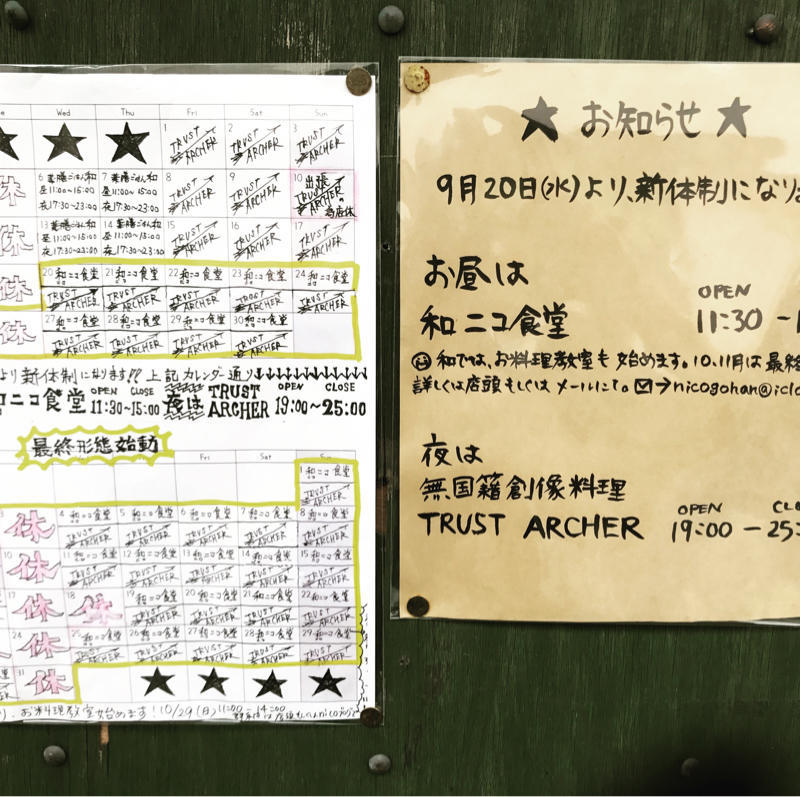 e Wed Thu Fri Sat Sun
★ ★ ★ 1 TRUST ARCHER 2 TRUST ARCHER 3 TRUST ARCHER
休 6 薬膳ごはん和 7 薬膳ごはん和 8 TRUST ARCHER 9 TRUST ARCHER 10 出張 TRUST ARCHER
昼11:00~15:00 昼11:00~15:00
夜17:30~23:00 夜17:30~23:00
休 13 薬膳ごはん和 14 薬膳ごはん和 15 TRUST ARCHER 16 TRUST ARCHER 17 TRUST ARCHER
昼11:00~15:00 昼11:00~15:00
夜17:30~23:00 夜17:30~23:00
休 20 和ニコ食堂 21 和ニコ食堂 22 和ニコ食堂 23 和ニコ食堂 24 和ニコ食堂
TRUST ARCHER TRUST ARCHER TRUST ARCHER TRUST ARCHER TRUST ARCHER
休 27 和ニコ食堂 28 和ニコ食堂 29 和ニコ食堂 30 和ニコ食堂
TRUST ARCHER TRUST ARCHER TRUST ARCHER TRUST ARCHER
より新体制になります!! 上記カレンダー通り
ニコ食堂 OPEN 11:30~ CLOSE 15:00 夜は TRUST ARCHER OPEN 19:00~ CLOSE 25:00
最終形態始動
Fri Sat Sun
1 和ニコ食堂
TRUST ARCHER
休 4 和ニコ食堂 5 和ニコ食堂 6 和ニコ食堂 7 和ニコ食堂 8 和ニコ食堂
TRUST ARCHER TRUST ARCHER TRUST ARCHER TRUST ARCHER TRUST ARCHER
10 休 11 和ニコ食堂 12 和ニコ食堂 13 和ニコ食堂 14 和ニコ食堂 15 和ニコ食堂
TRUST ARCHER TRUST ARCHER TRUST ARCHER TRUST ARCHER TRUST ARCHER
17 休 18 休 19 和ニコ食堂 20 和ニコ食堂 21 和ニコ食堂 22 和ニコ食堂
TRUST ARCHER TRUST ARCHER TRUST ARCHER TRUST ARCHER
24 休 25 和ニコ食堂 26 和ニコ食堂 27 和ニコ食堂 28 和ニコ食堂 29 和ニコ食堂
TRUST ARCHER TRUST ARCHER TRUST ARCHER TRUST ARCHER TRUST ARCHER
31 休 ★ ★ ★ ★
お料理教室始めます! 10/29(日) 11:00~14:00
★ お知らせ ★
9月20日(水)より、新体制になり
お昼は
和ニコ食堂 OPEN 11:30 -
和では、お料理教室も始めます。10、11月は最終
詳しくは店頭もしくは メールにて。✉→nicogohan@iclo
夜は
無国籍創像料理
TRUST ARCHER OPEN 19:00 - CLO 25: